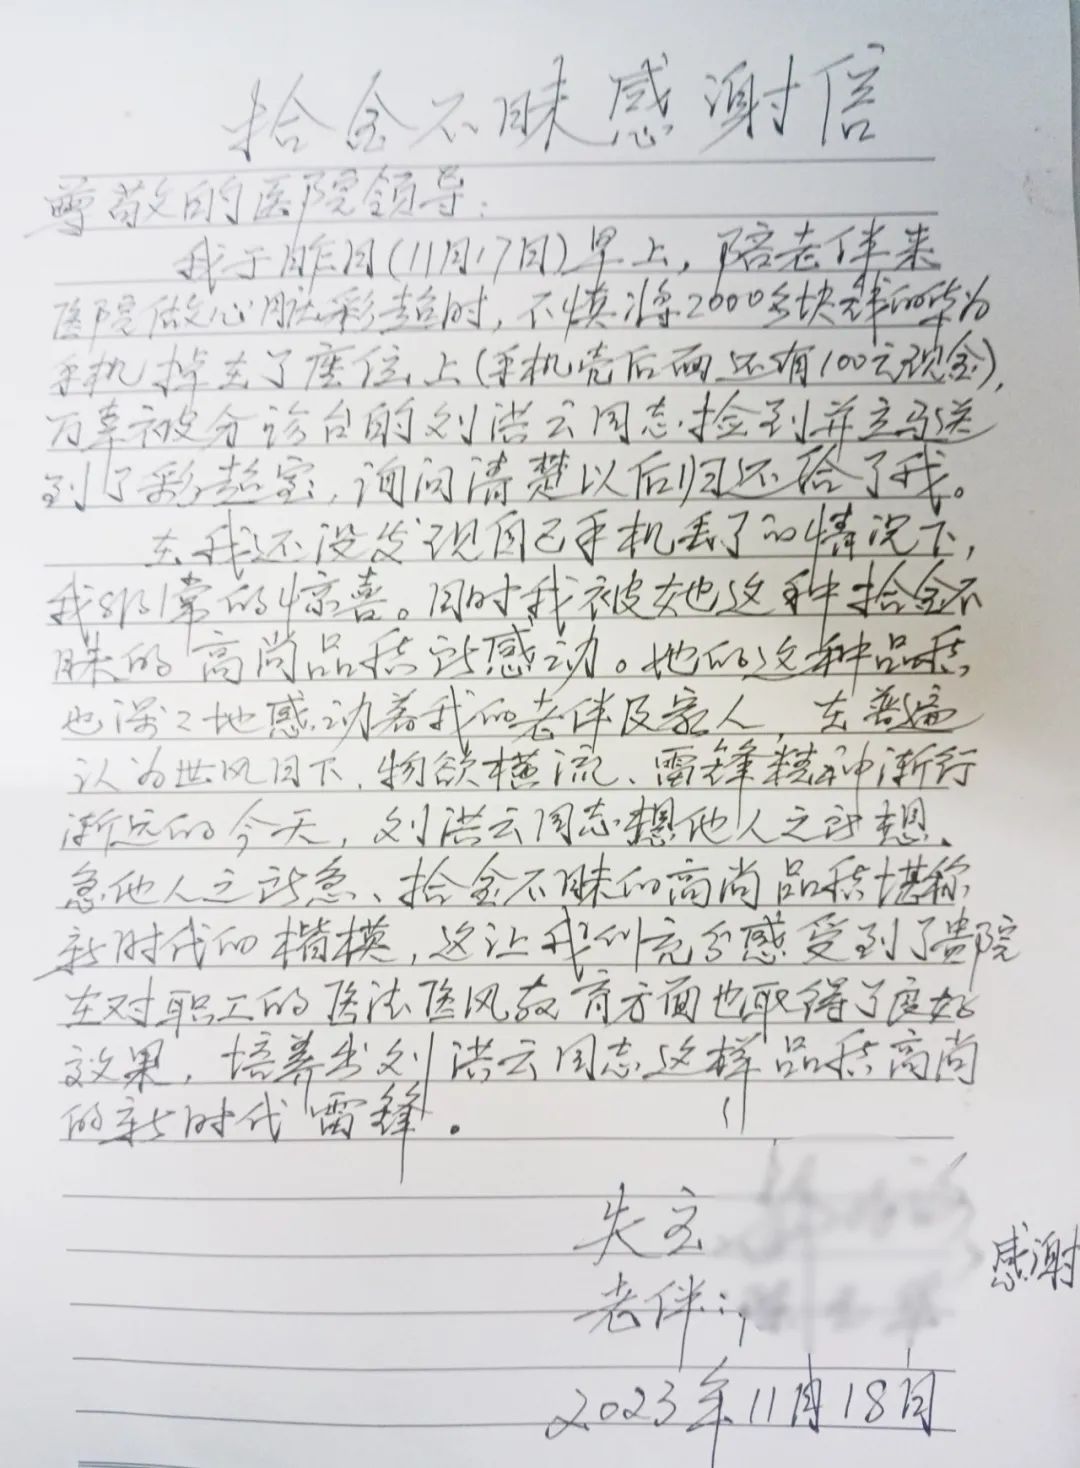 拾金不昧感谢信
尊敬的医院领导：
我于昨日(11月17日)早上，陪老伴来
医院做心脏彩超时，不慎将2000多块钱的华为
手机掉在了座位上(手机壳后面还有100元现金)，
万幸被分诊台的刘洪云同志捡到并立马送
到了彩超室，询问清楚以后归还给了我。
在我还没发现自己手机丢了的情况下，
我非常的惊喜。同时我被她这种拾金不
昧的高尚品德所感动。她的这种品德
也深深地感动着我的老伴及家人，在普遍
认为世风日下、物欲横流、雷锋精神渐行
渐远的今天，刘洪云同志想他人之所想、
急他人之所急、拾金不昧的高尚品德堪称
新时代的楷模，这让我们充分感受到了贵院
在对职工的医德医风教育方面也取得了良好
效果，培养出刘洪云同志这样品德高尚
的新时代雷锋。
失主
感谢
老伴：
2023年11月18日